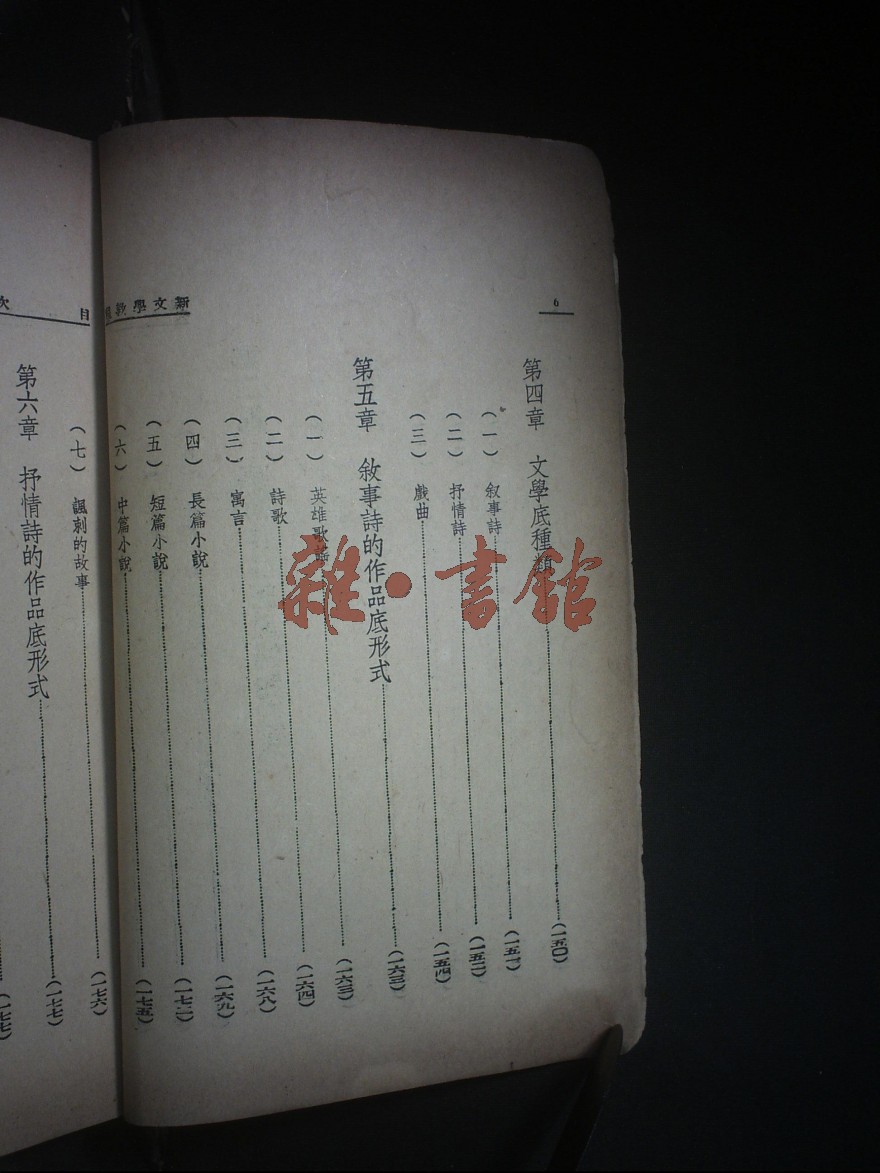 6
新文學教程
第四章 文學底種類……(一五〇)
(一) 叙事詩……(一五一)
(二) 抒情詩……(一五二)
(三) 戲曲……(一五四)
第五章 敘事詩的作品底形式……(一六三)
(一) 英雄歌……(一六三)
(二) 詩歌……(一六四)
(三) 寓言……(一六八)
(四) 長篇小說……(一六九)
(五) 短篇小說……(一七二)
(六) 中篇小說……(一七五)
目次
(七) 諷刺的故事……(一七六)
第六章 抒情詩的作品底形式……(一七七)
(一七七)
雜·書館